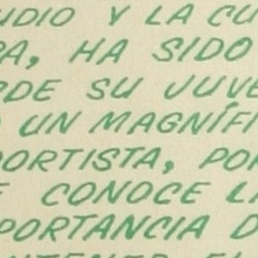 UDIO Y LA CU
RA, HA SIDO
DE SU JUVE
UN MAGNÍFI
PORTISTA, POR
E CONOCE LA
PORTANCIA D